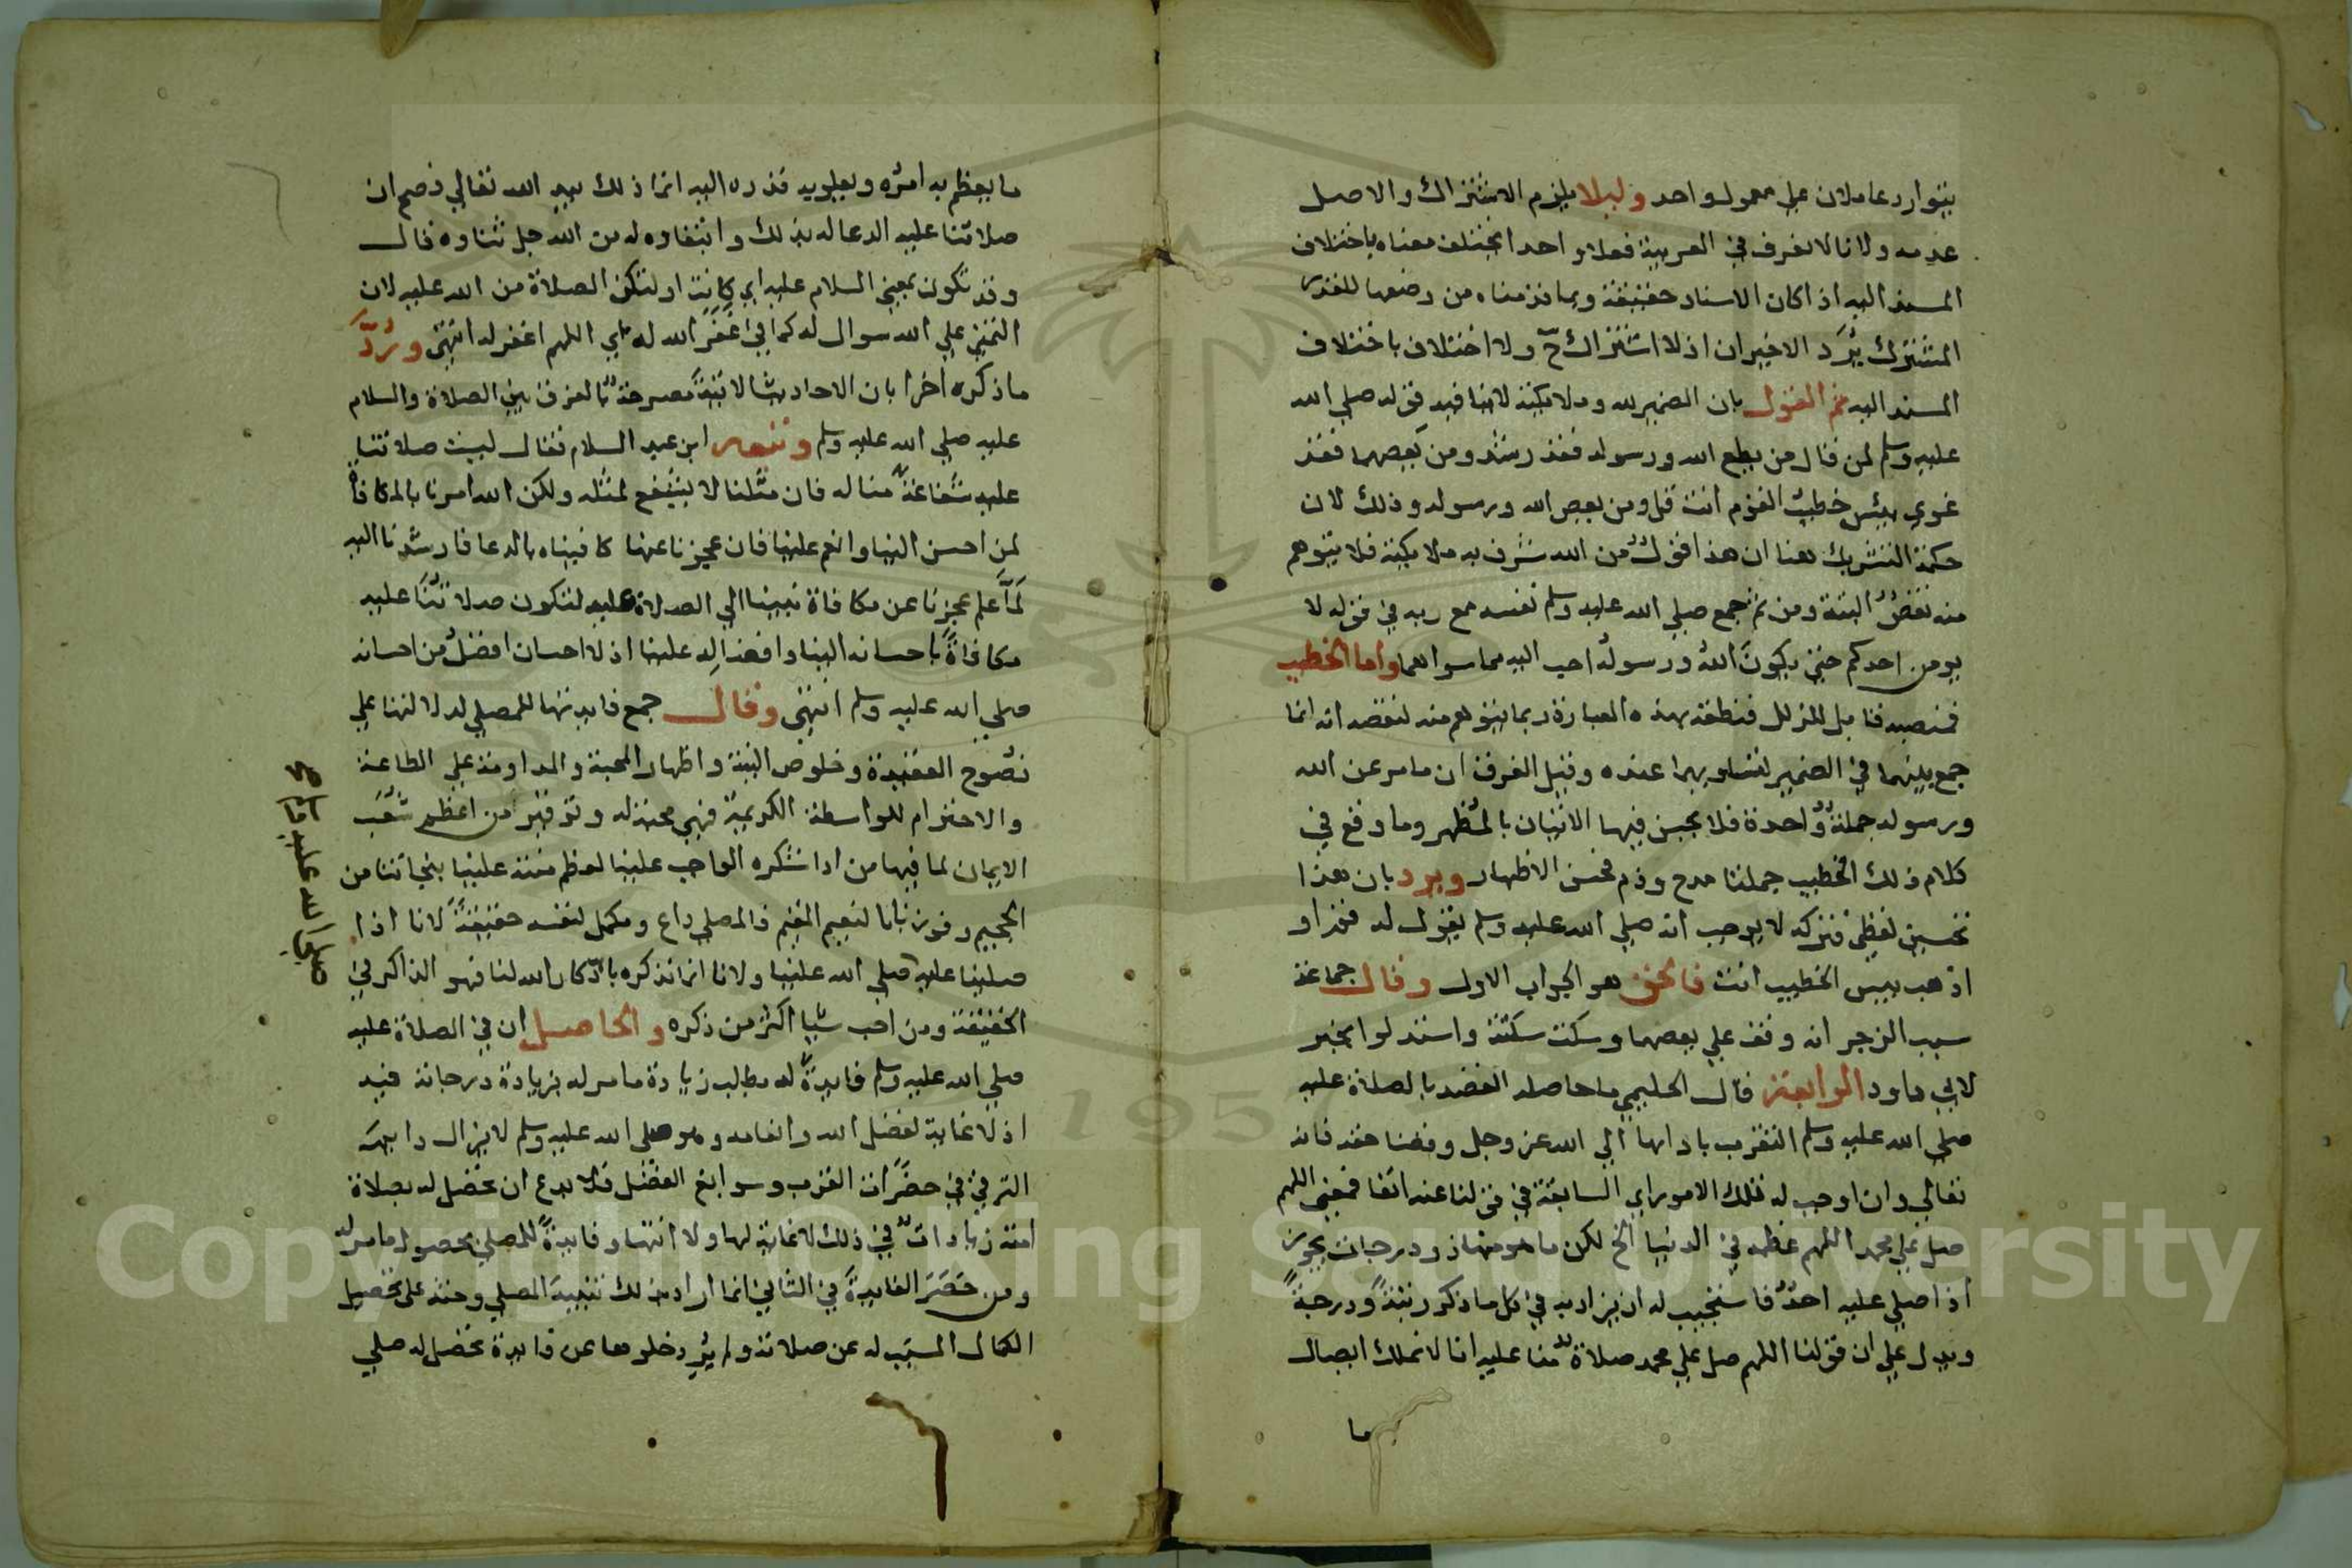 يتوارد عاملان علي معمول واحد وليلا يلزم الاشتراك والاصل
عدمه ولانا لا نعرف في العربية فعلا واحدا يختلف معناه باختلاف
المسند اليه اذا كان الاسناد حقيقة وبما قدمناه من وضعها للقدر
المشترك يُرَد الاخيران اذ لا اشتراك ح ولا اختلاف باختلاف
المسند اليه ثم القول بان الضمير لله وملايكته لا ينافيه قوله صلي الله
عليه وسلم لمن قال من يطع الله ورسوله فقد رشد ومن يعصهما فقد
غوي بيئس خطيب القوم انت قل ومن يعص الله ورسوله وذلك لان
حكمة التشريك هنا ان هذا قولٌ من الله شرف به ملايكته فلا يتوهم
منه نقصٌ البتة ومن ثم جمع صلي الله عليه وسلم نفسه مع ربه في قوله لا
يومن احدكم حتي يكونَ اللهُ ورسولُه احب اليه مما سواهما واما الخطيب
فمنصبه قابل للزلل فنطقه بهذه العبارة ربما يتوهم منه لنقصه انه انما
جمع بينهما في الضمير لتساويهما عنده وقيل الفرق ان ما مر عن الله
ورسوله جملةٌ واحدة فلا يحسن فيها الاتيان بالمُظهر وما وقع في
كلام ذلك الخطيب جملتا مدح وذم فحسن الاظهار ويرد بان هذا
تحسين لفظي فتركه لا يوجب انه صلي الله عليه وسلم يقول له قم او
اذهب بيس الخطيب انت فالحق هو الجواب الاول وقال جماعة
سبب الزجر انه وقف علي يعصهما وسكت سكتة واستدلوا بخبر
لابي داود الرابعة قال الحليمي ما حاصله القصد بالصلاة عليه
صلي الله عليه وسلم التقرب بادايها الي الله عز وجل وقضا حقه فانه
تعالي وان اوجب له تلك الامور اي السابقة في قولنا عنه انفا فمعني اللهم
صل علي محمد اللهم عظمه في الدنيا الخ لكن ما هو منها ذو درجات يجوز
اذا صلي عليه احدٌ فاستجيب له ان يزاد به في كل ما ذكر رتبةً ودرجةً
ويدل علي ان قولنا اللهم صل علي محمد صلاةٌ منا عليه انا لا نملك ايصال
ما
ما يعظم به امرُه ويعلو به قدره اليه انما ذلك بيد الله تعالي فصح ان
صلاتنا عليه الدعا له بذلك وابتغاوه له من الله جل ثناوه قال
وقد تكون بمعني السلام عليه اي كانت او لتكن الصلاة من الله عليه لان
التمني علي الله سوال له كما في غَفَرَ الله له اي اللهم اغفر له انتهي ورُدَّ
ما ذكره اخرا بان الاحاديث الاتيةَ مصرحةٌ بالفرق بين الصلاة والسلام
عليه صلي الله عليه وسلم وتبعه ابن عبد السلام فقال ليست صلاتنا
عليه شفاعةً منا له فان مثلنا لا يشفع لمثله ولكن الله امرنا بالمكافاة
لمن احسن الينا وانعم علينا فان عجزنا عنها كافيناه بالدعا فارشدنا اليه
لَمَّا علم عجزنا عن مكافاة نبينا الي الصلاة عليه لتكون صلاتُنَا عليه
مكافاةً باحسانه الينا وافضاله علينا اذ لا احسان افضلُ من احسانه
صلي الله عليه وسلم انتهي وقال جمع فايدتها للمصلي لدلالتها علي
نصُوح العقيدة وخلوص النية واظهار المحبة والمداومة علي الطاعة
والاحترام للواسطة الكريمة فهي محبة له وتوقير من اعظم شُعَب
الايمان لما فيها من ادا شكره الواجب علينا لعظم منته علينا بنجاتنا من
الجحيم وفوزنا بالنعيم المقيم فالمصلي داع ومكمل لنفسه حقيقةً لانا اذا
صلينا عليه صلي الله علينا ولانا انما نذكره باذكار الله لنا فهو الذاكر في
الحقيقة ومن احب شيا اكثر من ذكره والحاصل ان في الصلاة عليه
صلي الله عليه وسلم فايدةً له بطلب زيادة ما مر له بزيادة درجاته فيه
اذ لا غاية لفضل الله وانعامه وهو صلي الله عليه وسلم لا يزال دايم
الترقي في حضَرَات القرب وسوابغ الفضل فلا بدع ان تحصل له بصلاة
امته زياداتٌ في ذلك لا غاية لها ولا انتها وفايدةً للمصلي بحصول ما مر له
ومن حَصَرَ الفايدةَ في الثاني انما اراد بذلك تنبيهَ المصلي وحثه علي تحصيل
الكمال المسبَب له عن صلاته ولم يُرِد خلوها عن فايدة تحصل له صلي
Copyright © King Saud University
195